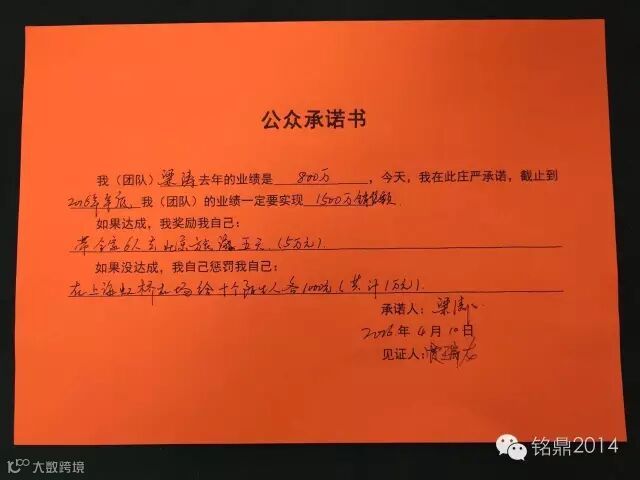 公众承诺书
我（团队）梁涛去年的业绩是 800万 ，今天，我在此庄严承诺，截止到
2016年年底，我（团队）的业绩一定要实现 1500万销售额
如果达成，我奖励我自己：
带全家6人去北京旅游五天（5万元）
如果没达成，我自己惩罚我自己：
在上海虹桥机场给十个陌生人各1000元（共计1万元）
承诺人：梁涛
2016年4月10日
见证人：
铭鼎2014
大数跨境